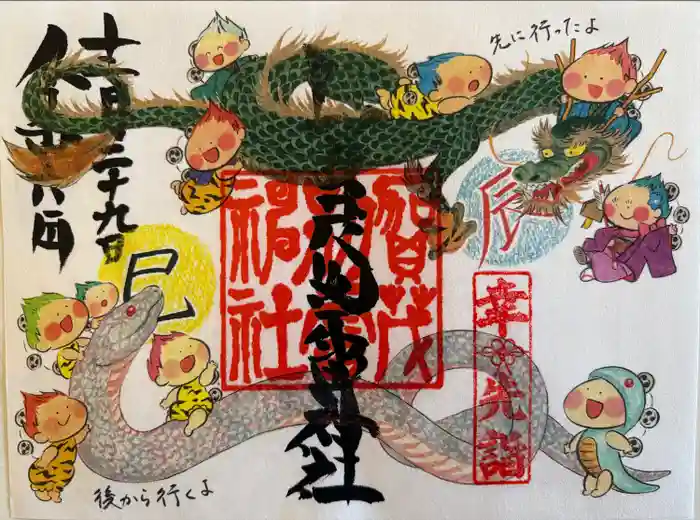 先に行ったよ
辰
賀茂
別雷
神社
賀茂別雷神社
幸先詣
令和六年
十二月二十九日
巳
後から行くよ